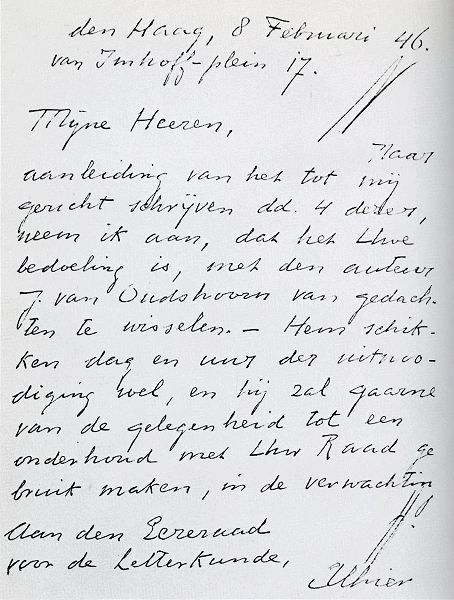 den Haag, 8 Februari 46.
van Imhoff-plein 17.
Mijne Heeren,
Naar
aanleiding van het tot mij
gericht schrijven dd. 4 dezer,
neem ik aan, dat het Uwe
bedoeling is, met den auteur
J. van Oudshoorn van gedach-
ten te wisselen. - Hem schik-
ken dag en uur der uitnoo-
diging wel, en hij zal gaarne
van de gelegenheid tot een
onderhoud met Uw Raad ge
bruik maken, in de verwachtin
Aan den Eereraad
voor de Letterkunde,
Alhier